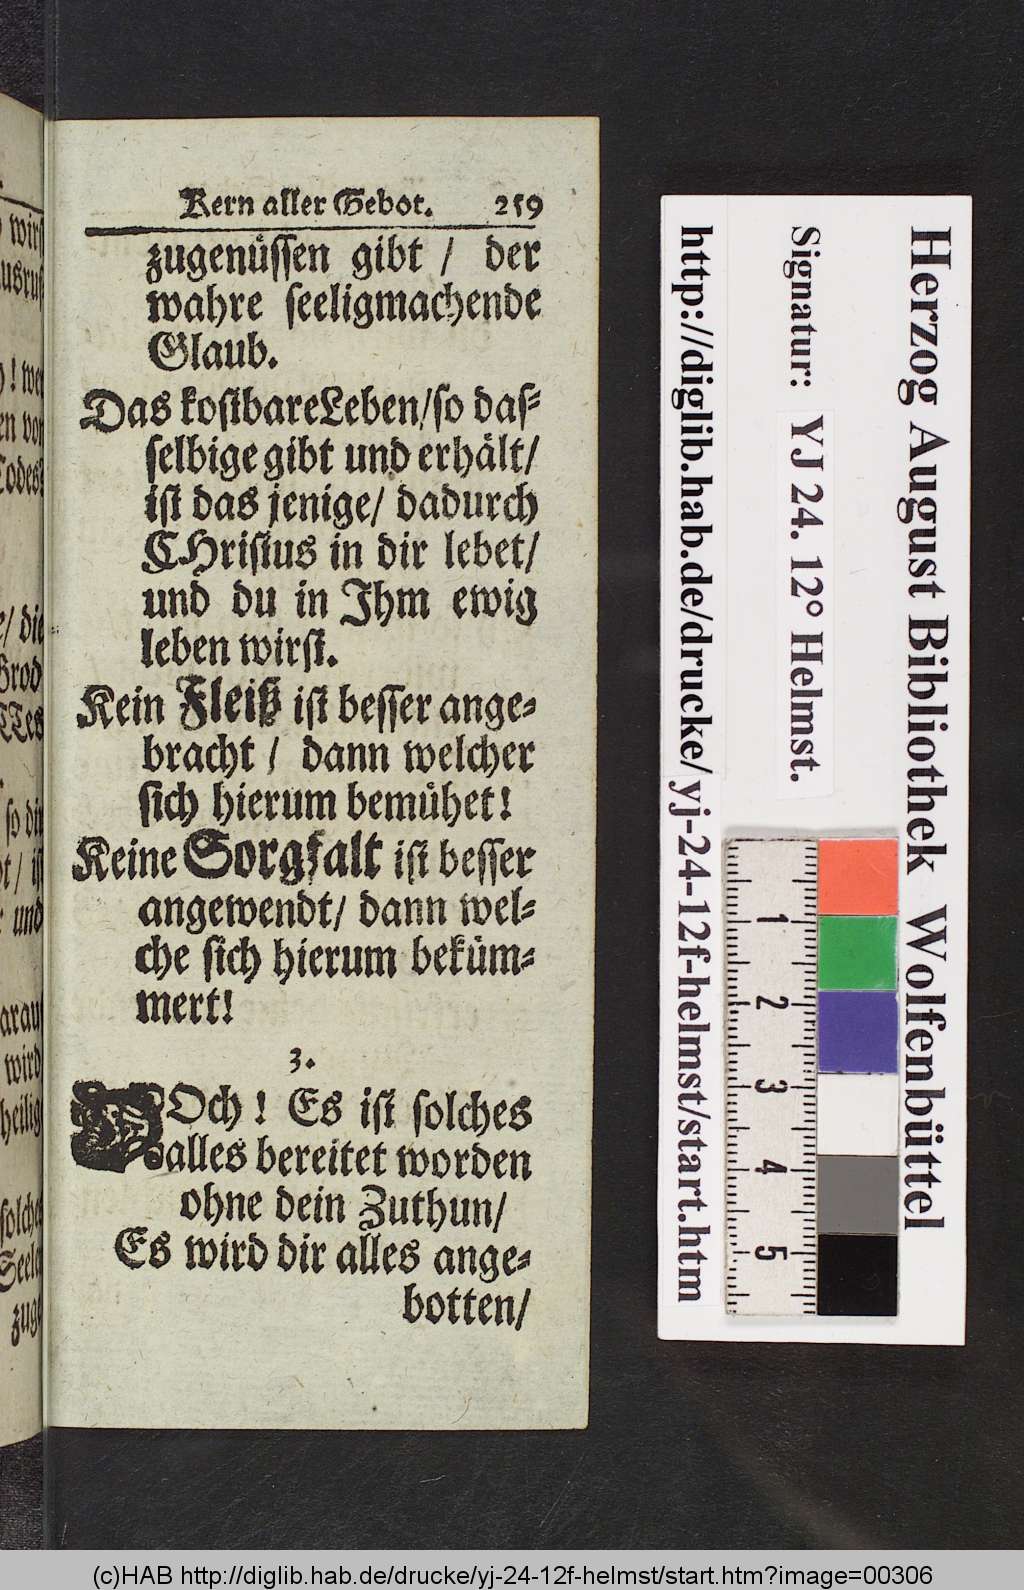 Kern aller Gebot. 259
zugenüssen gibt / der
wahre seeligmachende
Glaub.
Das kostbare Leben/so das⸗
selbige gibt und erhält/
ist das jenige/ dadurch
CHristus in dir lebet/
und du in Ihm ewig
leben wirst.
Kein Fleiß ist besser ange⸗
bracht / dann welcher
sich hierum bemühet!
Keine Sorgfalt ist besser
angewendt/ dann wel⸗
che sich hierum beküm⸗
mert!
3.
DOch! Es ist solches
alles bereitet worden
ohne dein Zuthun/
Es wird dir alles ange⸗
botten/
wirst
! wer
von
Todes
die
Brod
TTes
so dir
ist
und
wird
heilig
solche
Seele
zuge
Herzog August Bibliothek Wolfenbüttel
Signatur: YJ 24. 12° Helmst.
http://diglib.hab.de/drucke/yj-24-12f-helmst/start.htm
1
2
3
4
5
(c)HAB http://diglib.hab.de/drucke/yj-24-12f-helmst/start.htm?image=00306